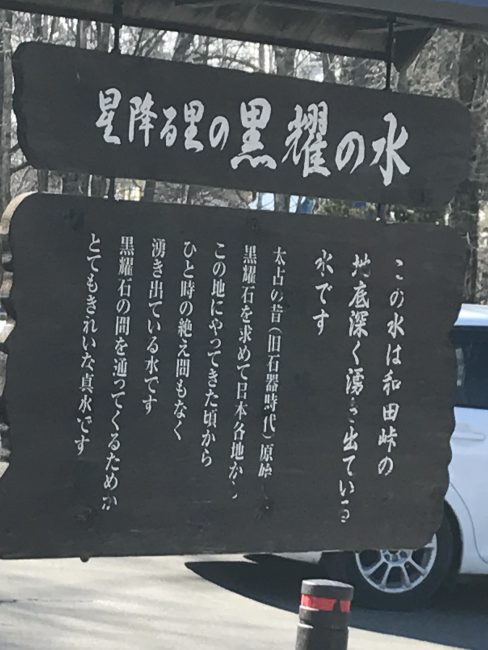 星降る里の黒耀の水
この水は和田峠の
地底深く湧き出ている
水です
太古の昔(旧石器時代)原始
黒耀石を求めて日本各地から
この地にやってきた頃から
ひと時の絶え間もなく
湧き出ている水です
黒耀石の間を通ってくるためか
とてもきれいな真水です